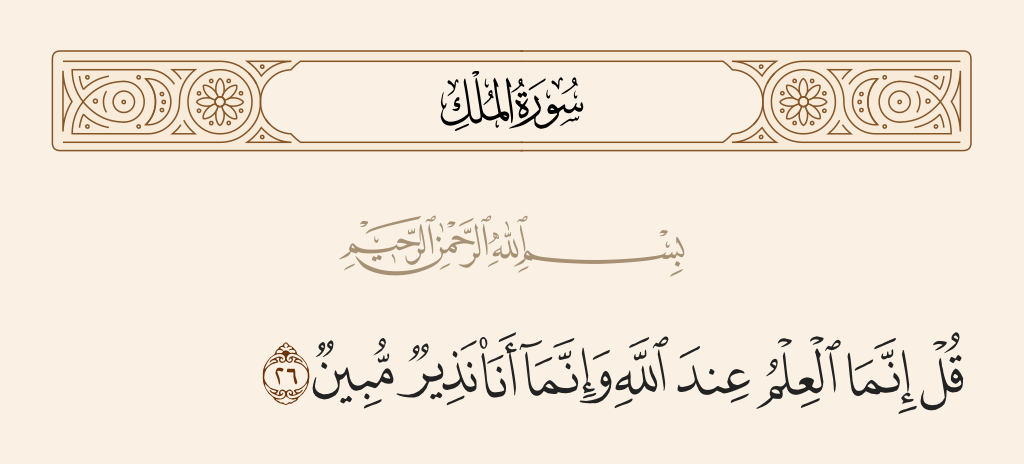 سُورَةُ الْمُلْكِ
بِسْمِ ٱللَّهِ ٱلرَّحْمَٰنِ ٱلرَّحِيمِ
قُلْ إِنَّمَا ٱلْعِلْمُ عِندَ ٱللَّهِ وَإِنَّمَآ أَنَا۠ نَذِيرٌ مُّبِينٌ ٢٦